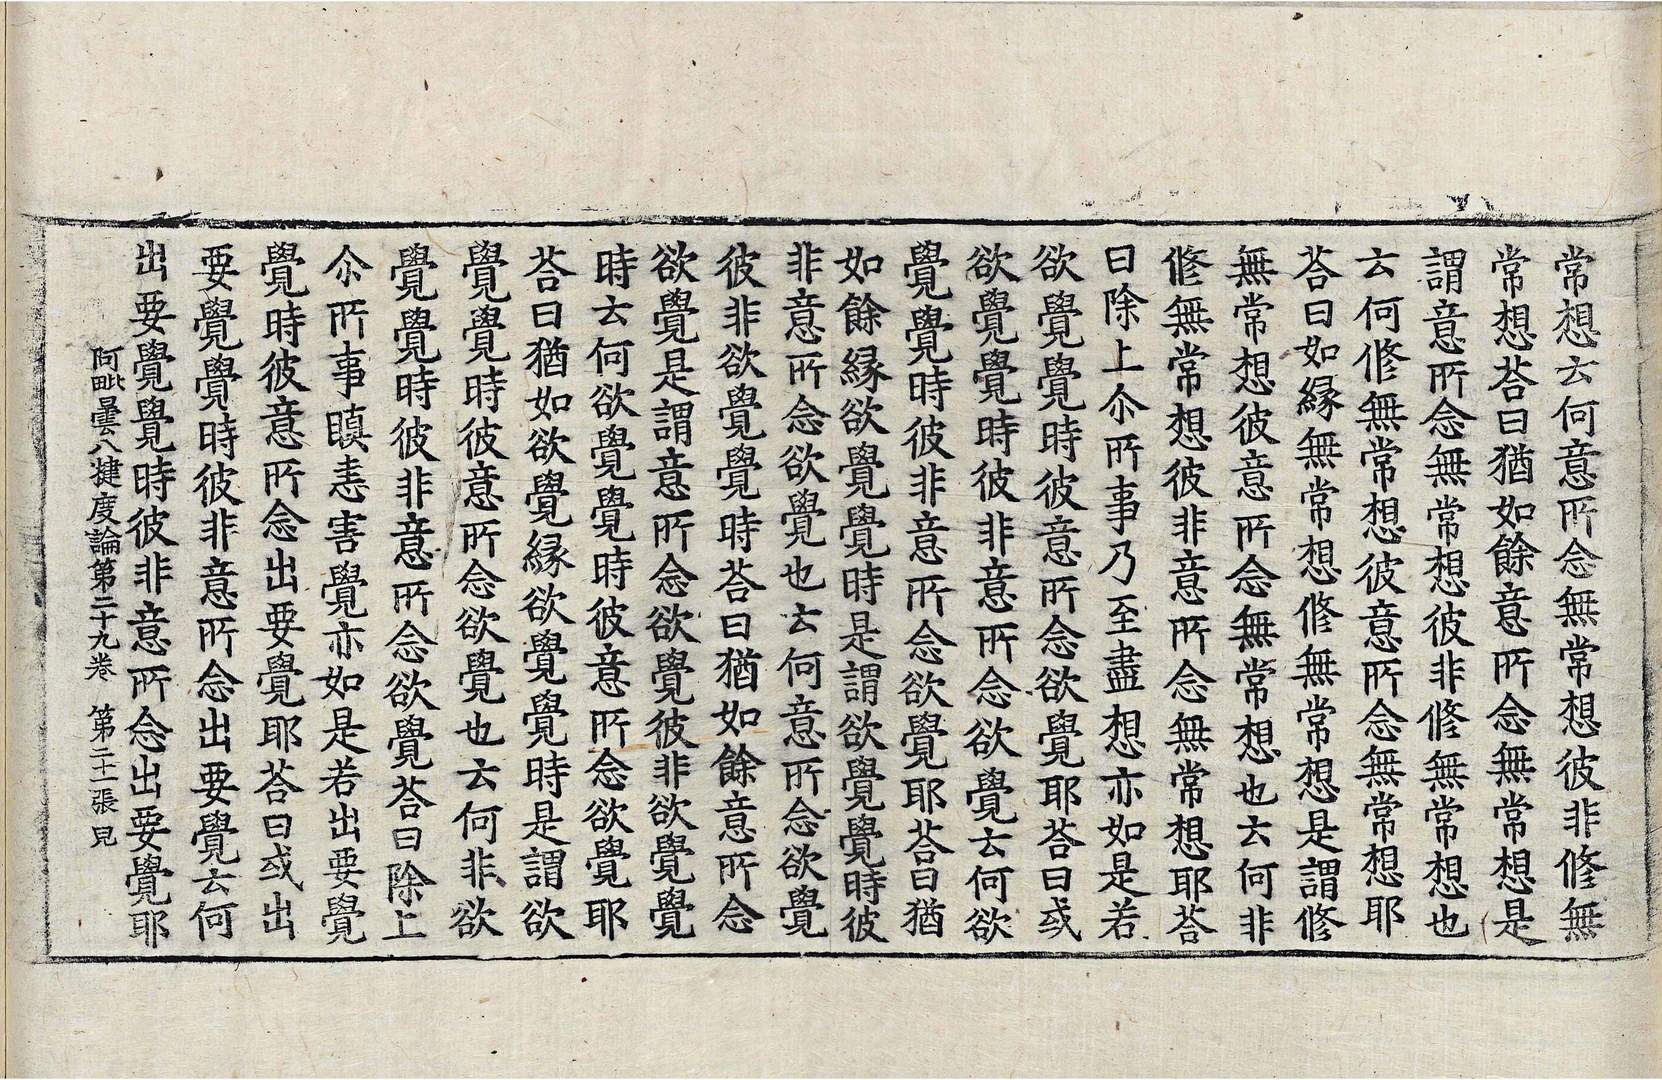 常想云何意所念無常想彼非修無
常想荅曰猶如餘意所念無常想是
謂意所念無常想彼非修無常想也
云何修無常想彼意所念無常想耶
荅曰如緣無常想修無常想是謂修
無常想彼意所念無常想也云何非
修無常想彼非意所念無常想耶荅
曰除上尒所事乃至盡想亦如是若
欲覺覺時彼意所念欲覺耶荅曰或
欲覺覺時彼非意所念欲覺云何欲
覺覺時彼非意所念欲覺耶荅曰猶
如餘緣欲覺覺時是謂欲覺覺時彼
非意所念欲覺也云何意所念欲覺
彼非欲覺覺時荅曰猶如餘意所念
欲覺是謂意所念欲覺彼非欲覺覺
時云何欲覺覺時彼意所念欲覺耶
荅曰猶如欲覺緣欲覺覺時是謂欲
覺覺時彼意所念欲覺也云何非欲
覺覺時彼非意所念欲覺荅曰除上
尒所事瞋恚害覺亦如是若出要覺
覺時彼意所念出要覺耶荅曰或出
要覺覺時彼非意所念出要覺云何
出要覺覺時彼非意所念出要覺耶
阿毗曇八揵度論第二十九卷 第二十一張 見